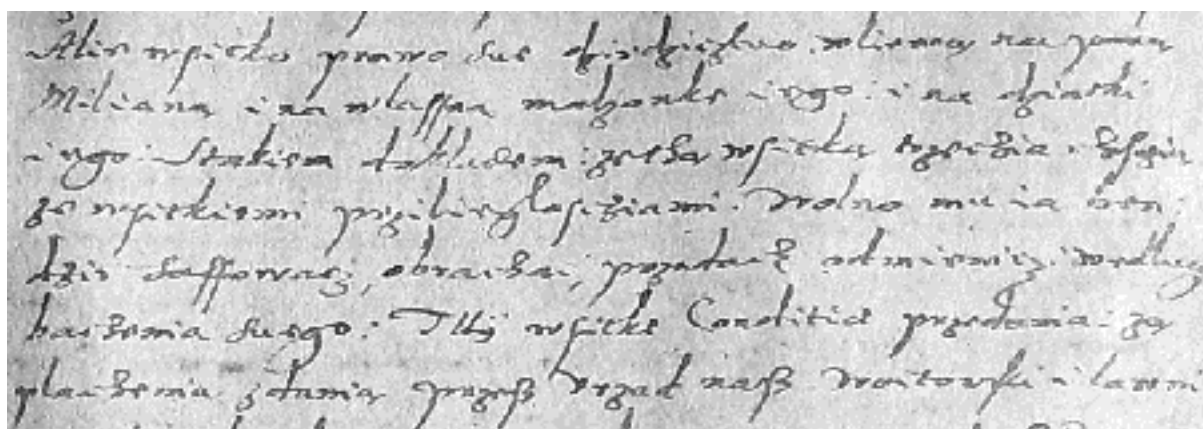 Ale wsitko prawo sue dziedzicstwo wliewa na pana
Miliana i na wlassną malzonke iego: i na dziatki
iego: Stakiem dokladem: ze tha wsitką trzeczia
ze wsitkiemi prziliegloscziami. Wolno mu ia ben:
dzie saffowacz, obraczac, przedacz odmienicz. wedlug
baczenia suego: Tly wsitke Conditiae przedania: za
placzenia zdania przesz Vrzad nasz Woitowski i lawni